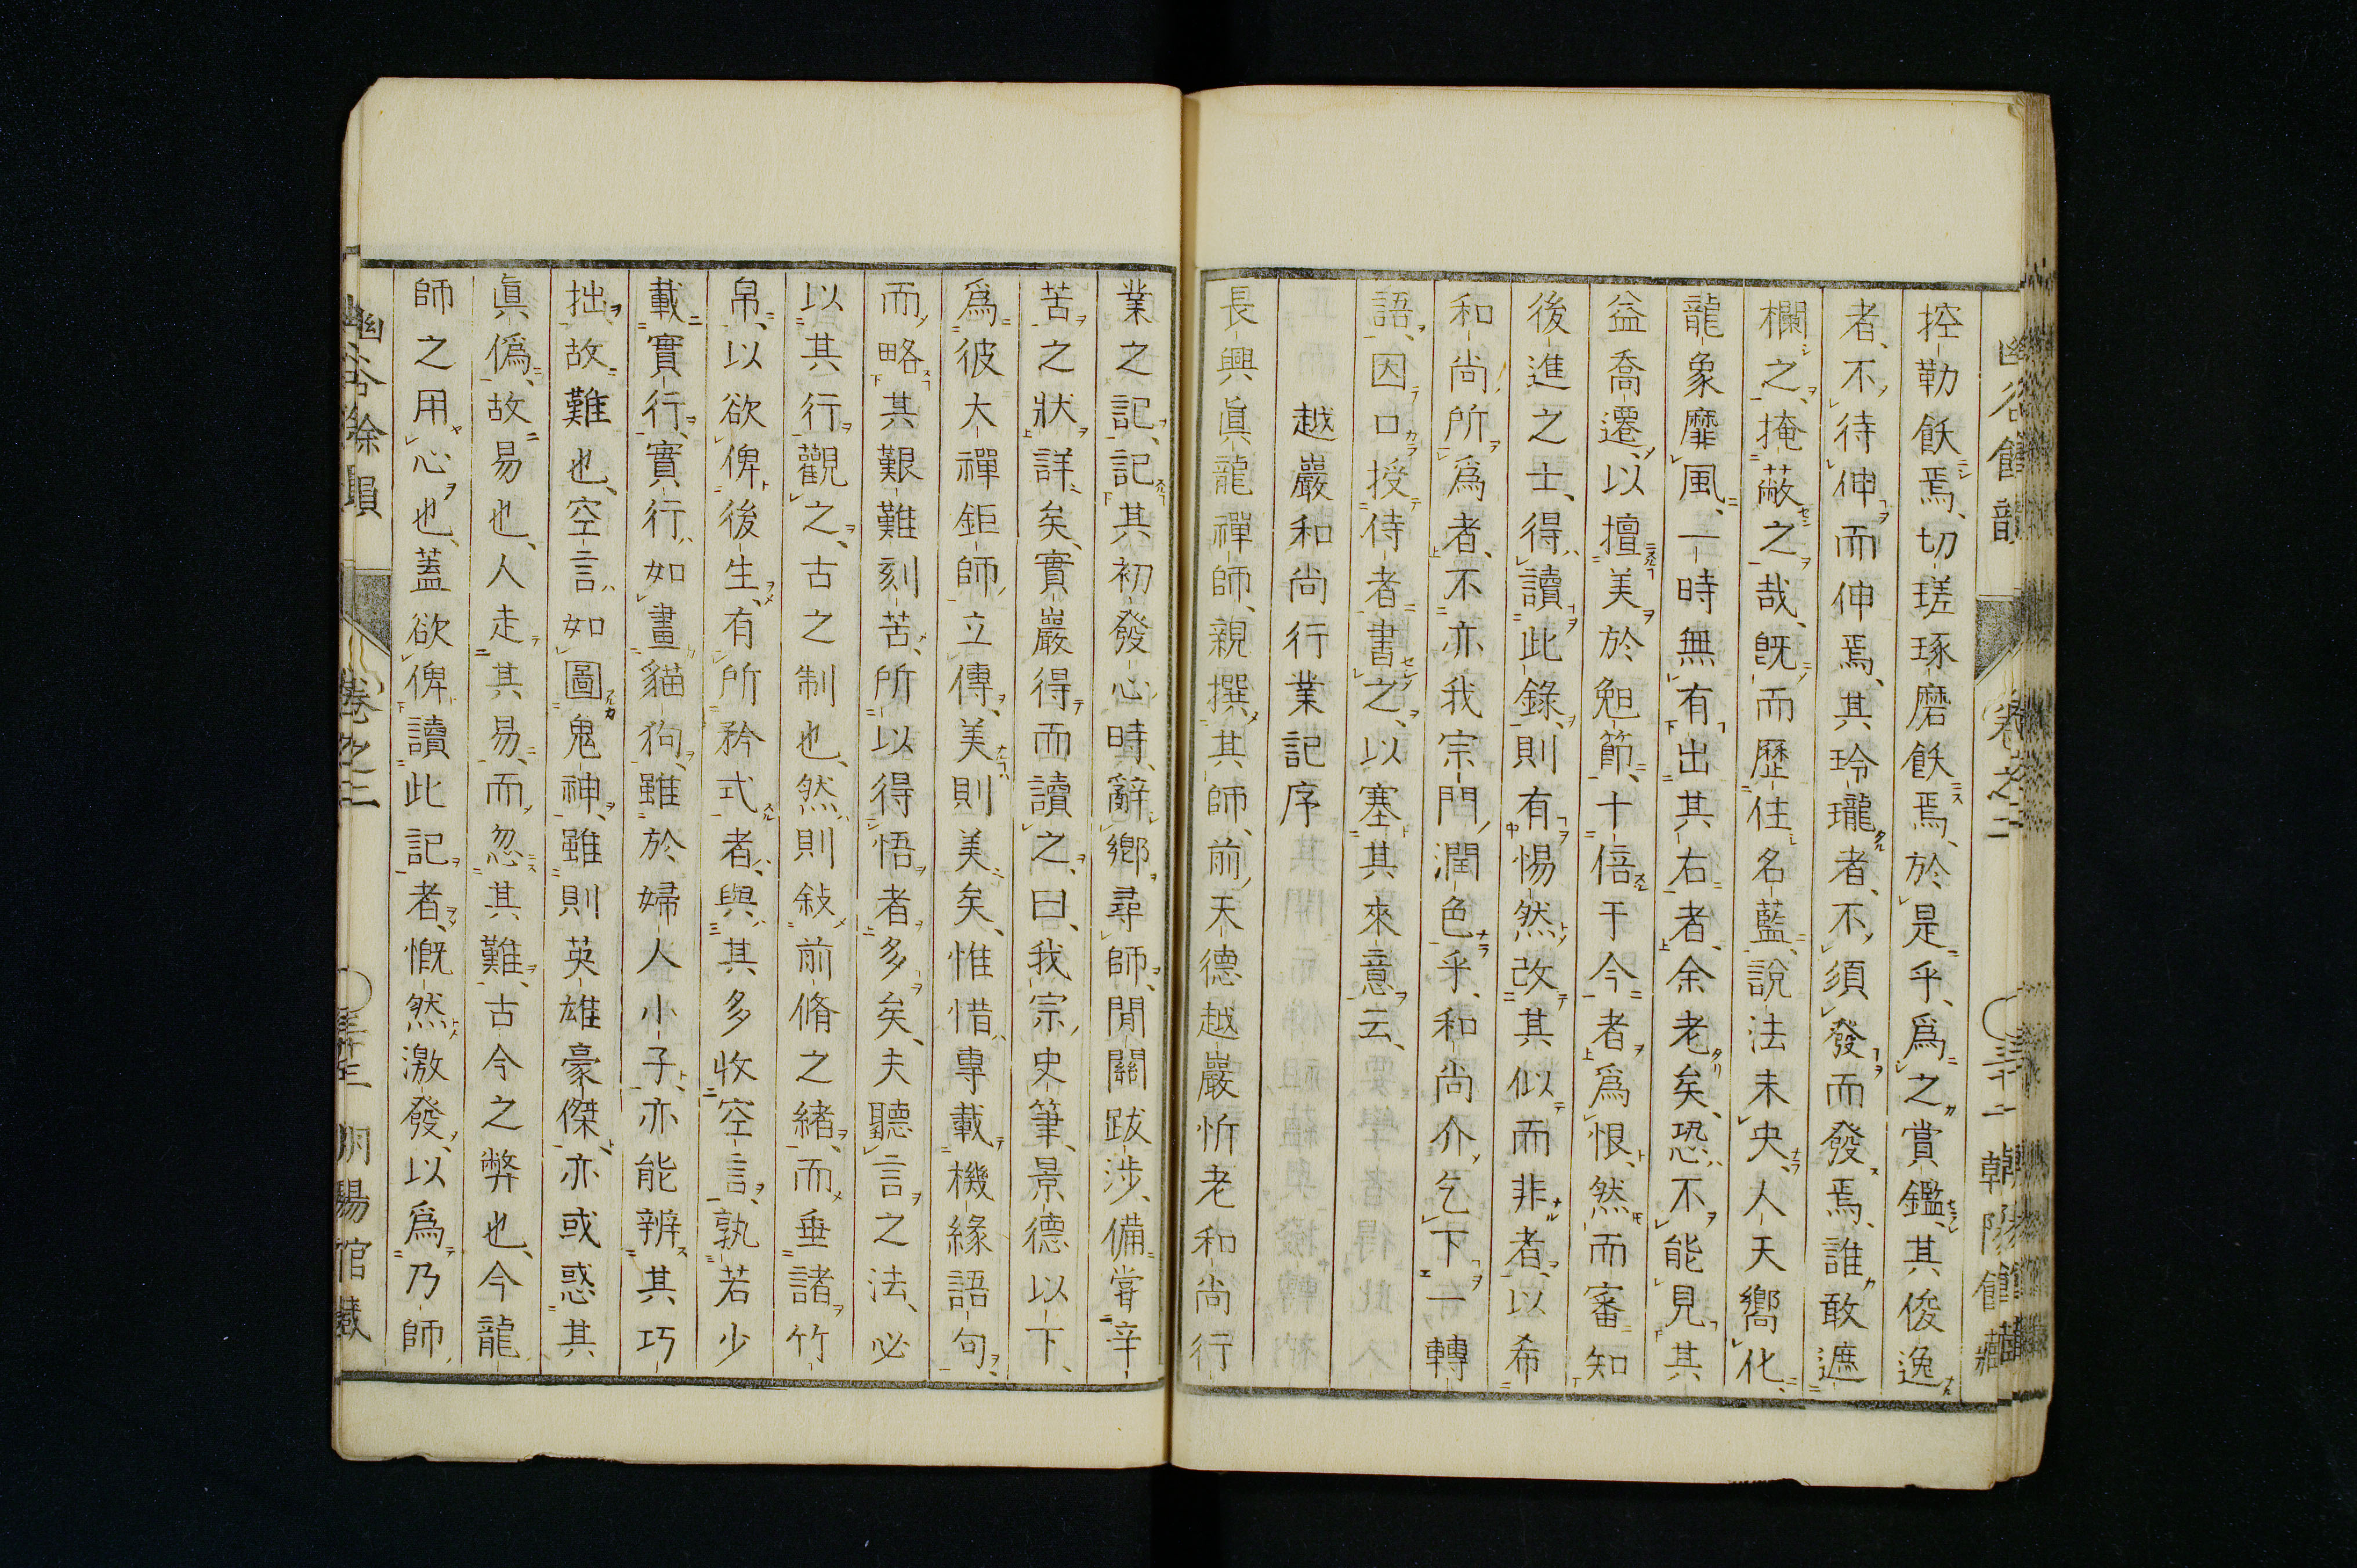 控勒飫焉、切瑳琢磨飫焉、於是乎、爲之賞鑑、其俊逸
者、不待伸而伸焉、其玲瓏者、不須發而發焉、誰敢遮
欄之、掩蔽之哉、既而歷住名藍、說法未央、人天嚮化、
龍象靡風、一時無有出其右者、余老矣、恐不能見其
益喬遷、以擅美於晚節、十倍于今者爲恨、然而審知
後進之士、得讀此錄、則有惕然改其似而非者、以希
和尚所爲者、不亦我宗門潤色乎、和尚介乞下一轉
語、因口授侍者書之、以塞其來意云、
越巖和尚行業記序
長興眞龍禪師、親撰其師、前天德越巖忻老和尚行
業之記、記其初發心時、辭鄉尋師、閒關跋涉、備嘗辛
苦之狀、詳矣、實巖得而讀之、曰、我宗史筆、景德以下、
爲彼大禪鉅師立傳、美則美矣、惟惜專載機緣語句、
而略其艱難刻苦、所以得悟者多矣、夫聽言之法、必
以其行觀之、古之制也、然則敍前脩之緒、而垂諸竹
帛、以欲俾後生、有所矜式者、與其多收空言、孰若少
載實行、實行如畫貓狗、雖於婦人小子、亦能辨其巧
拙、故難也、空言如圖鬼神、雖則英雄豪傑、亦或惑其
眞僞、故易也、人走其易、而忽其難、古今之弊也、今龍
師之用心也、蓋欲俾讀此記者、慨然激發、以爲乃師
幽谷餘韻 卷之三